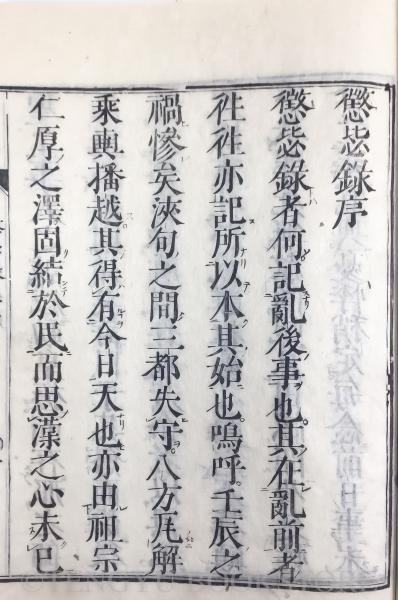 懲毖錄序
懲毖錄者何記亂後事也其在亂前者
徃徃亦記所以本其始也嗚呼壬辰之
禍慘矣浹旬之間三都失守八方瓦解
乘輿播越其得有今日天也亦由祖宗
仁厚之澤固結於民而思漢之心未已